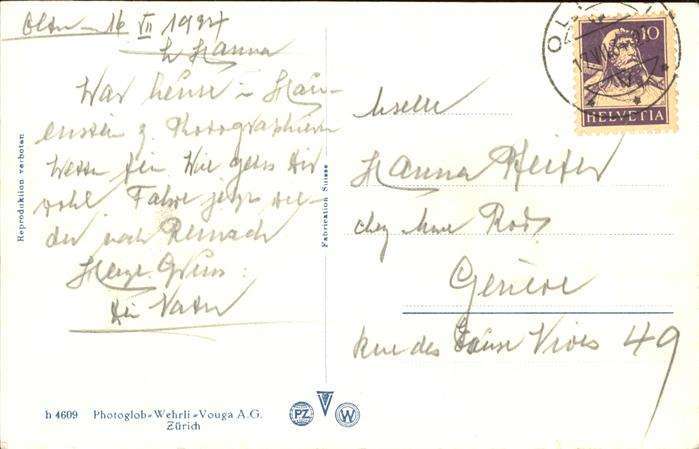 Olten 16 VII 1927
L Hanna
War heute in Hau-
enstein z. Photographieren
Wetter fein Wie geht's Dir
wohl Fahre jetzt wie-
der nach Reinach
Herzl. Gruss:
Dein Vater
Mselle
Hanna
chez Mme
Genève
Rue des Eaux Vives 49
10
HELVETIA
Reproduktion verboten
Fabrication Suisse
h 4609 Photoglob-Wehrli-Vouga A.G.
Zürich
PZ
V
W